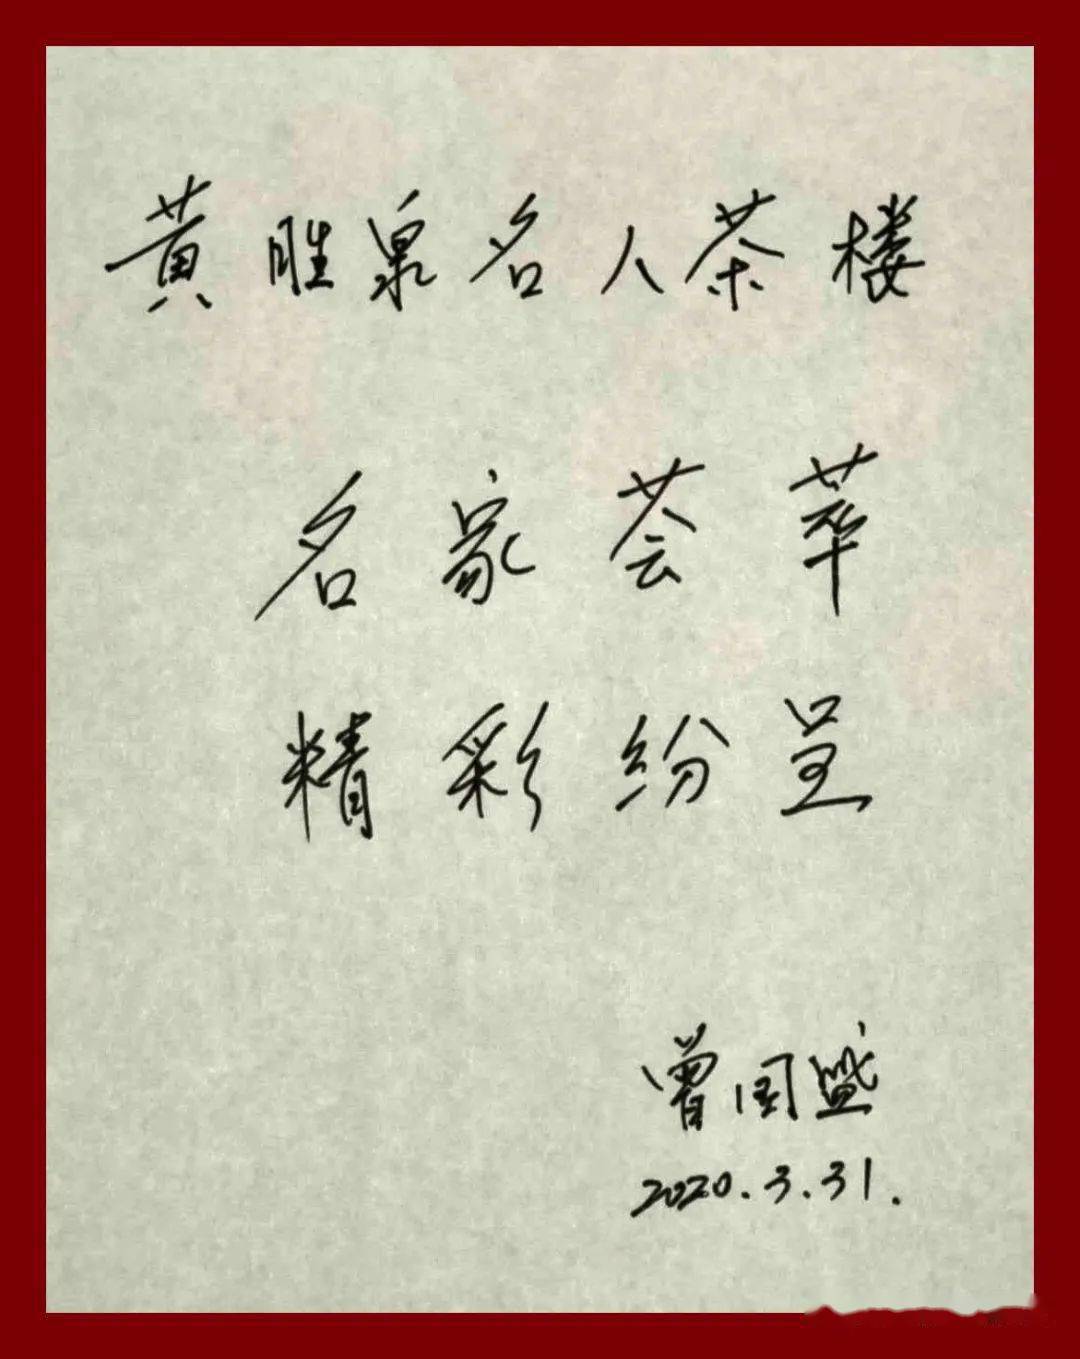 黄胜泉名人茶楼
名家荟萃
精彩纷呈
曾国盛
2020.3.31.